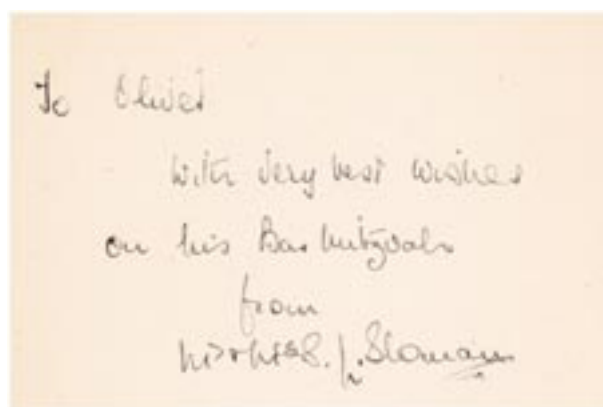 To Oliver
with very best wishes
on his Bar Mitzvah
from
Sloman